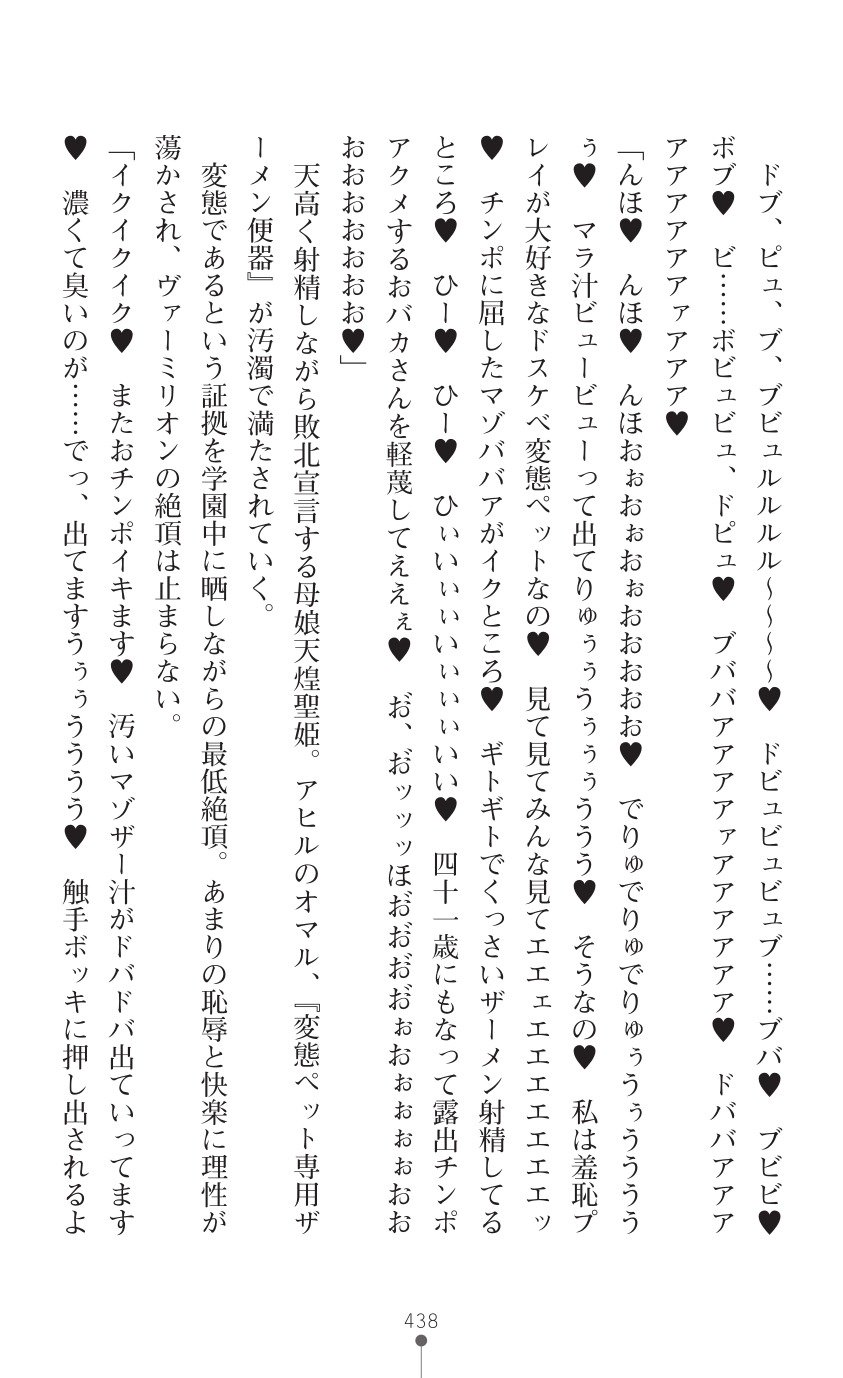 ドブ、ピュ、ブ、ブビュルルルル～～～～♥　ドビュビュビュブ……ブバ♥　ブビビ♥
ボブ♥　ビ……ボビュビュ、ドピュ♥　ブババアアアアァアアアアアア♥　ドババアアア
アアアアアアァアアアア♥
「んほ♥　んほ♥　んほおぉおぉおぉおおおおお♥　でりゅでりゅでりゅぅうぅうううう
ぅ♥　マラ汁ビュービューって出てりゅぅぅうぅぅぅううう♥　そうなの♥　私は羞恥プ
レイが大好きなドスケベ変態ペットなの♥　見て見てみんな見てエエェエエエエエエエッ
♥　チンポに屈したマゾババアがイクところ♥　ギトギトでくっさいザーメン射精してる
ところ♥　ひー♥　ひー♥　ひぃいぃぃいぃぃぃいい♥　四十一歳にもなって露出チンポ
アクメするおバカさんを軽蔑してええぇ♥　お゛、お゛ッッッほお゛お゛お゛お゛ぉおぉぉぉぉおお
おおおおおおお♥」
天高く射精しながら敗北宣言する母娘天煌聖姫。アヒルのオマル、『変態ペット専用ザ
ーメン便器』が汚濁で満たされていく。
変態であるという証拠を学園中に晒しながらの最低絶頂。あまりの恥辱と快楽に理性が
蕩かされ、ヴァーミリオンの絶頂は止まらない。
「イクイクイク♥　またおチンポイキます♥　汚いマゾザー汁がドバドバ出ていってます
♥　濃くて臭いのが……でっ、出てますうぅぅうううう♥　触手ボッキに押し出されるよ
438